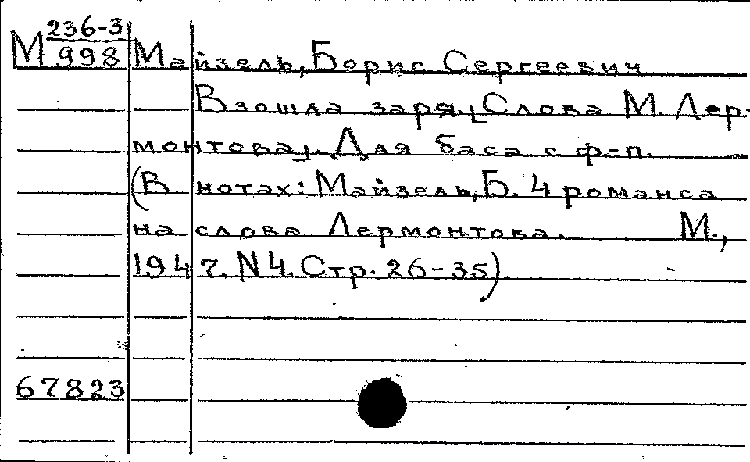 М 236-3
998 Майзель, Борис Сергеевич
Взошла заря. [Слова М. Лер-
монтова]. Для баса с ф-п.
(В нотах: Майзель, Б. 4 романса
на слова Лермонтова. М.,
1947. N4. Стр. 26-35)
67823